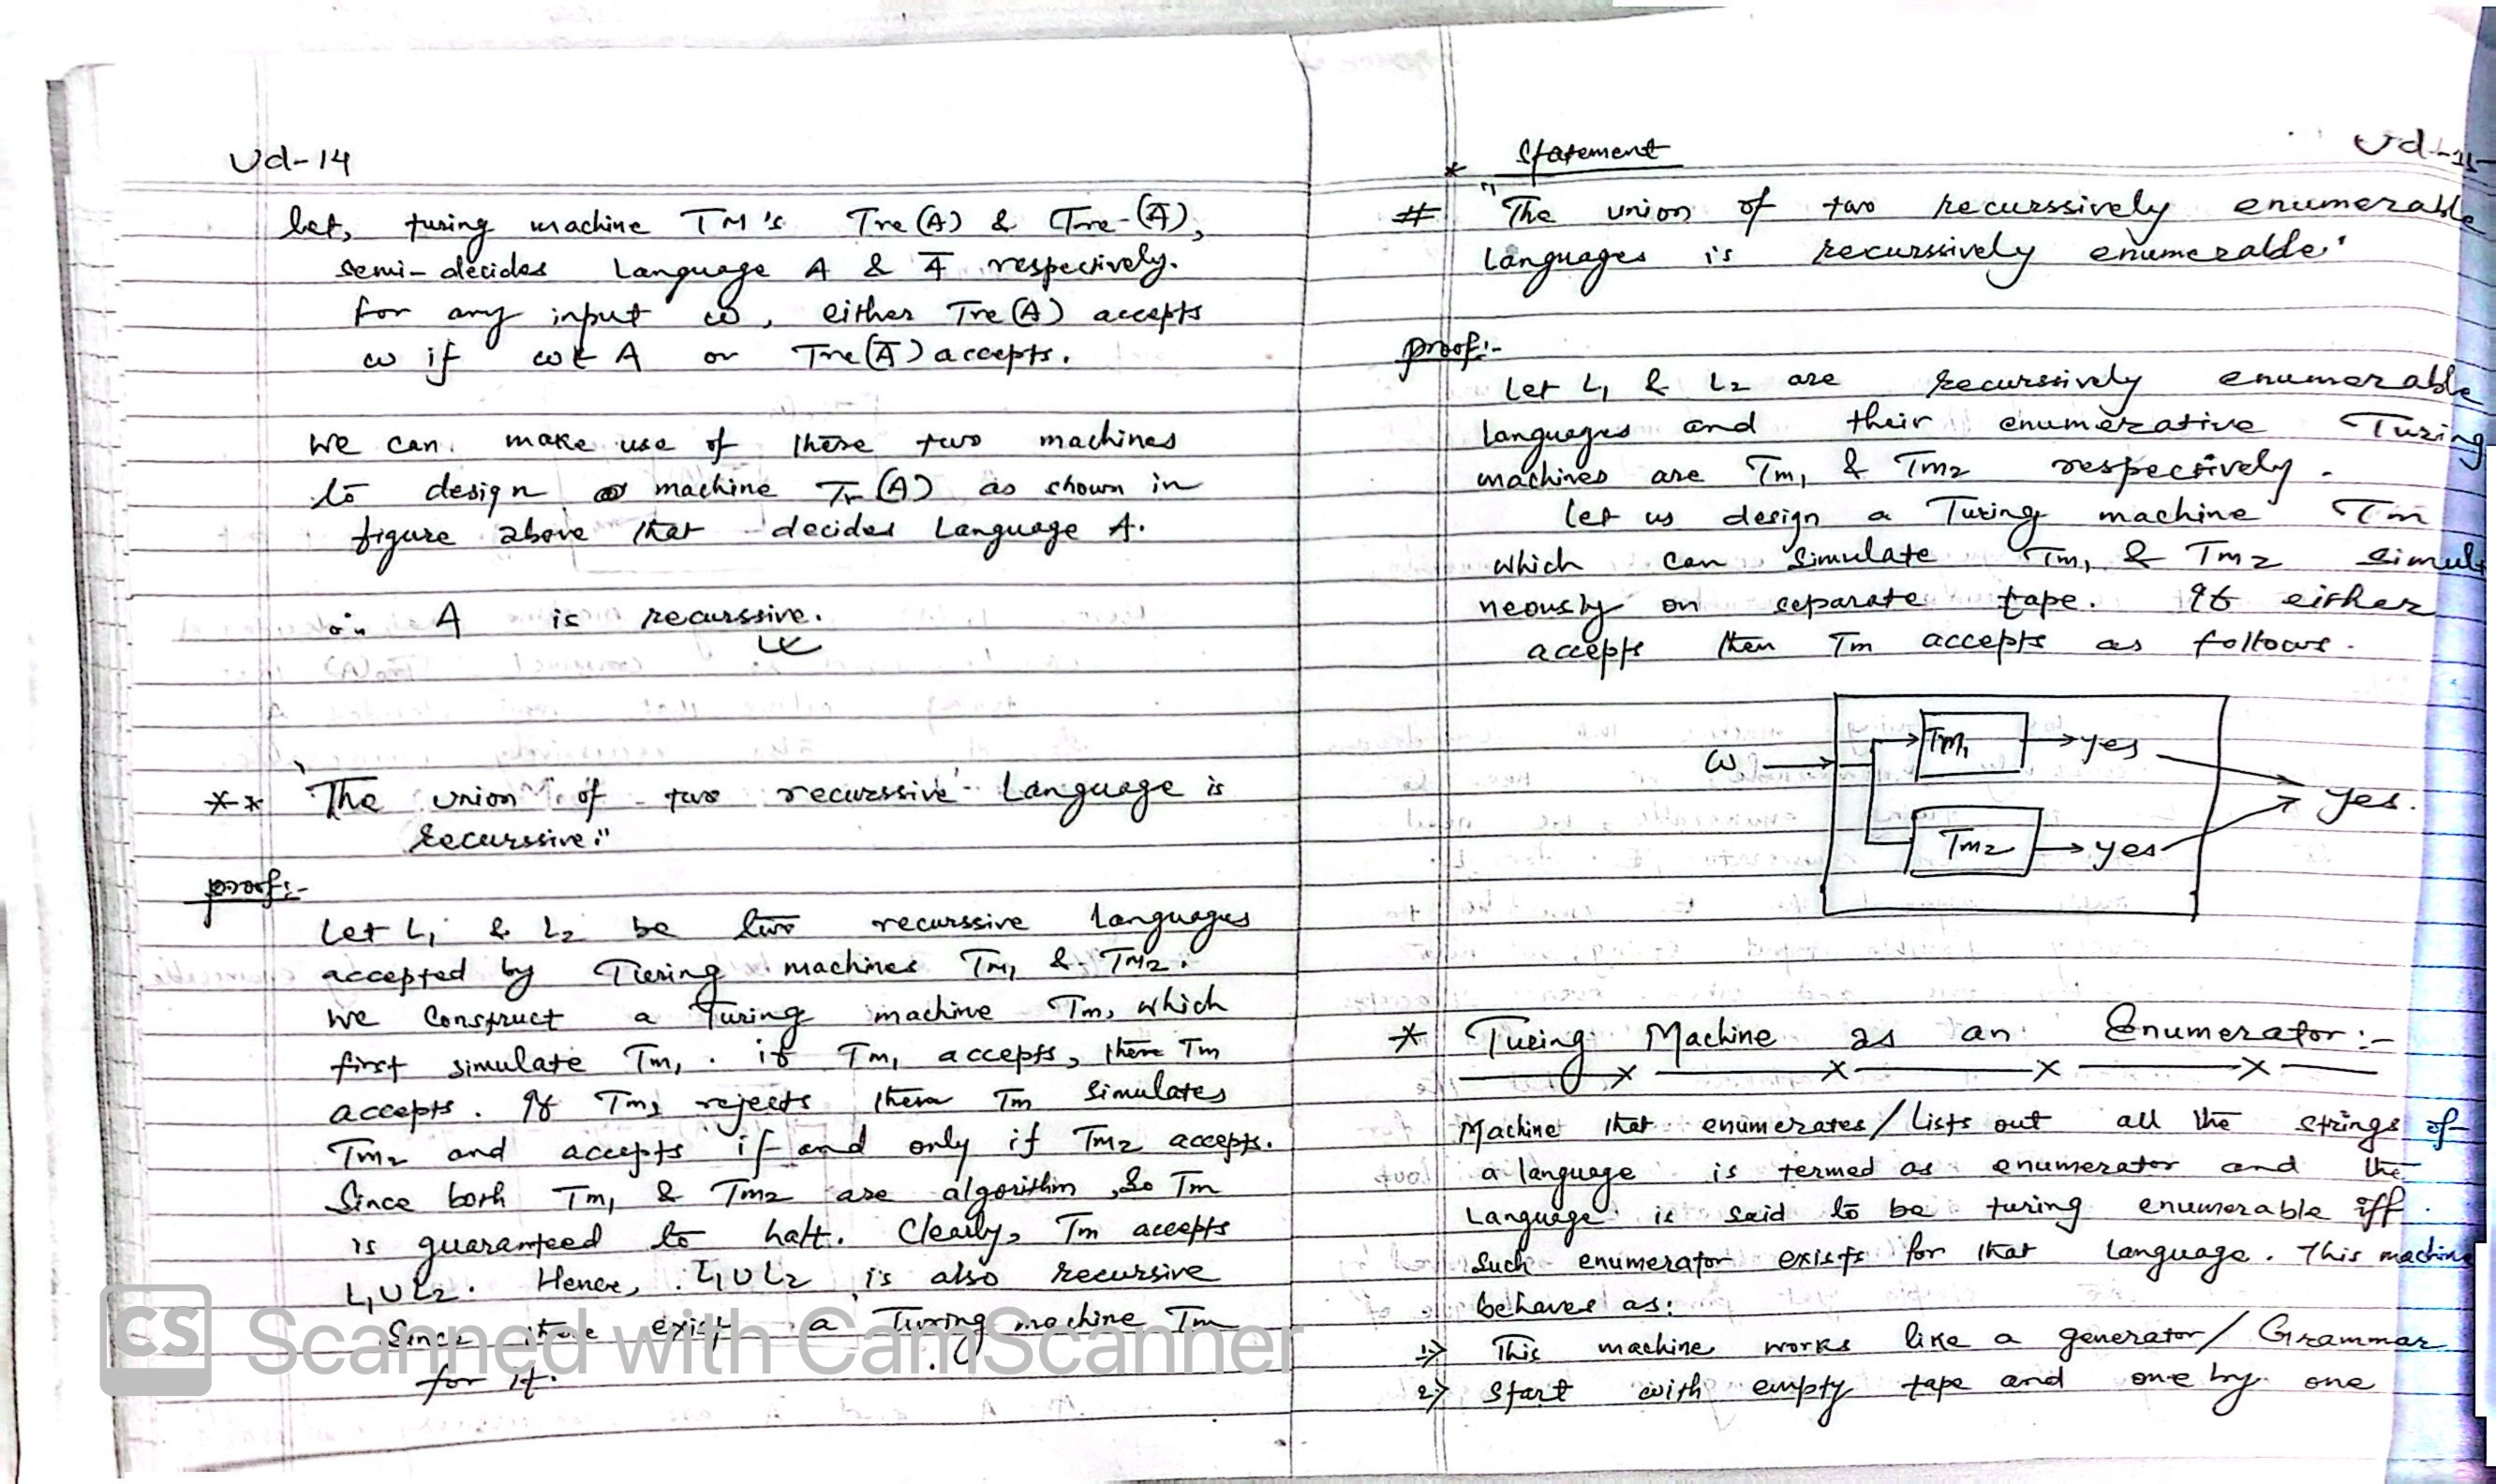 Ud-14
let, turing machine TM's Tre(A) & Tre-(A̅),
semi-decides Language A & A̅ respectively.
for any input ω, either Tre(A) accepts
ω if ω ∈ A or Tre(A̅) accepts.
We can make use of these two machines
to design a machine Tr(A) as shown in
figure above that decides Language A.
∴ A is recurssive.
** "The union of two recurssive Language is
recurssive."
proof:-
Let L1 & L2 be two recurssive languages
accepted by Turing machines TM1 & TM2.
We Construct a Turing machine Tm, which
first simulate Tm1. if Tm1 accepts, then Tm
accepts. If Tm1 rejects then Tm Simulates
Tm2 and accepts if and only if Tm2 accepts.
Since both Tm1 & Tm2 are algorithm, So Tm
is guaranteed to halt. Clearly, Tm accepts
L1UL2. Hence, L1UL2 is also recursive
Since there exist a Turing machine Tm
for it.
CS Scanned with CamScanner
* Statement
Ud-15
# "The union of two recurssively enumerable
Languages is recurssively enumerable."
proof:-
Let L1 & L2 are recurssively enumerable
languages and their enumerative Turing
machines are Tm1 & Tm2 respectively.
let us design a Turing machine Tm
which can Simulate Tm1 & Tm2 simult
neously on separate tape. If either
accepts then Tm accepts as follows.
Tm1 → yes
ω → yes.
Tm2 → yes
* Turing Machine as an Enumerator:-
Machine that enumerates/Lists out all the strings of
a language is termed as enumerator and the
Language is said to be turing enumerable iff
Such enumerator exists for that Language. This machine
behaves as:
1> This machine works like a generator/Grammar
2> Start with empty tape and one by one